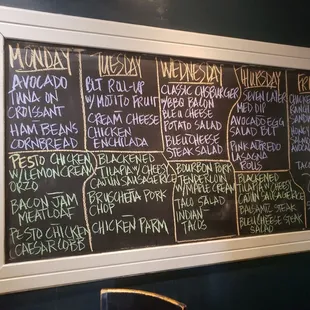 MONDAY
AVOCADO
TUNA ON
CROISSANT
HAM BEANS
CORNBREAD
PESTO CHICKEN
W/LEMON CREAM
ORZO
BACON JAM
MEATLOAF
PESTO CHICKEN
CAESAR COBB
TUESDAY
BLT ROLL-UP
W/MOTO FRUIT
CREAM CHEESE
CHICKEN
ENCHILADA
BLACKENED
TILAPIA W/CHEESY
CAJUN SAUSAGE RICE
BRUSCHETTA PORK
CHOP
CHICKEN PARM
WEDNESDAY
CLASSIC CHSBURGER
W/BBQ BACON
BLEU CHEESE
POTATO SALAD
BLEU CHEESE
STEAK SALAD
BOURBON PORK
TENDERLOIN
W/MAPLE CREAM
TACO SALAD
INDIAN
TACOS
THURSDAY
SEVEN LAYER
MED DIP
AVOCADO EGG
SALAD BLT
PINK ALFREDO
LASAGNA
ROLLS
BLACKENED
TILAPIA W/CHEESY
CAJUN SAUSAGE RICE
BALSAMIC STEAK
BLEU CHEESE STEAK
SALAD
FR